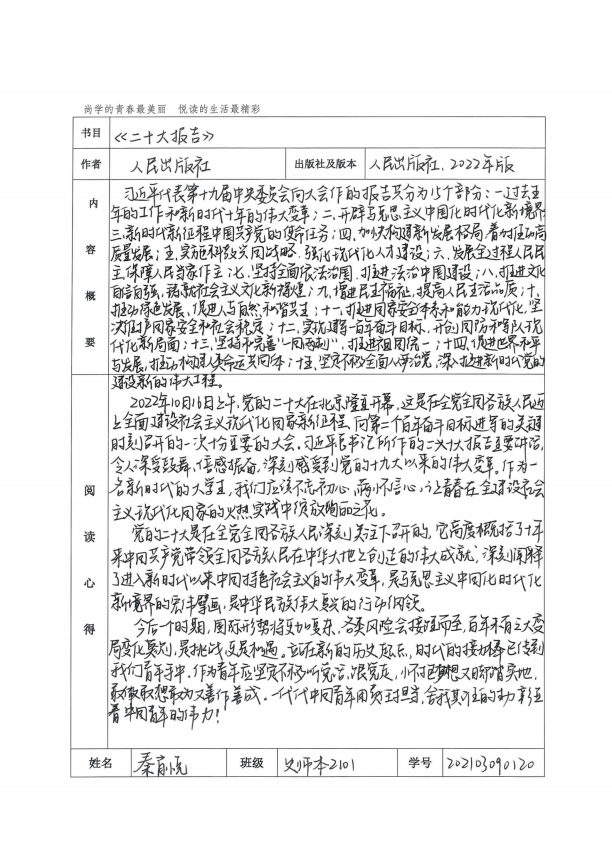 尚学的青春最美丽 悦读的生活最精彩
书目 《二十大报告》
作者 人民出版社 出版社及版本 人民出版社，2022年版
内容概要
习近平代表第十九届中央委员会向大会作的报告共分为15个部分：一、过去五
年的工作和新时代十年的伟大变革；二、开辟马克思主义中国化时代化新境界
三、新时代新征程中国共产党的使命任务；四、加快构建新发展格局，着力推动高
质量发展；五、实施科教兴国战略，强化现代化人才建设；六、发展全过程人民民
主，保障人民当家作主；七、坚持全面依法治国，推进法治中国建设；八、推进文化
自信自强，铸就社会主义文化新辉煌；九、增进民生福祉，提高人民生活品质；十、
推动绿色发展，促进人与自然和谐共生；十一、推进国家安全体系和能力现代化，坚
决维护国家安全和社会稳定；十二、实现建军一百年奋斗目标，开创国防和军队现
代化新局面；十三、坚持和完善“一国两制”，推进祖国统一；十四、促进世界和平
与发展，推动构建人类命运共同体；十五、坚定不移全面从严治党，深入推进新时代党的
建设新的伟大工程。
阅读心得
2022年10月16日上午，党的二十大在北京隆重开幕，这是在全党全国各族人民迈
上全面建设社会主义现代化国家新征程，向第二个百年奋斗目标进军的关键
时刻召开的一次十分重要的大会。习近平总书记所作的二十大报告重要讲话，
令人深受鼓舞，倍感振奋，深刻感受到党的十九大以来的伟大变革。作为一
名新时代的大学生，我们应该不忘初心，满怀信心，让青春在全面建设社会
主义现代化国家的火热实践中绽放绚丽之花。
党的二十大是在全党全国各族人民深刻关注下召开的，它高度概括了十年
来中国共产党带领全国各族人民在中华大地上创造的伟大成就，深刻阐释
了进入新时代以来中国特色社会主义的伟大变革，是马克思主义中国化时代化
新境界的宏伟擘画，是中华民族伟大复兴的行动纲领。
今后一个时期，国际形势将更加复杂，各类风险会接踵而至，百年未有之大变
局变化莫测，是挑战，更是机遇。立在新的历史起点，时代的接力棒已传到
我们青年手中，作为青年应坚定不移听党话，跟党走，怀抱梦想又脚踏实地，
敢想敢为又善作善成。一代代中国青年用责任担当，
看中国青年的伟力！
姓名 秦 班级 史师本2101 学号 202103090120